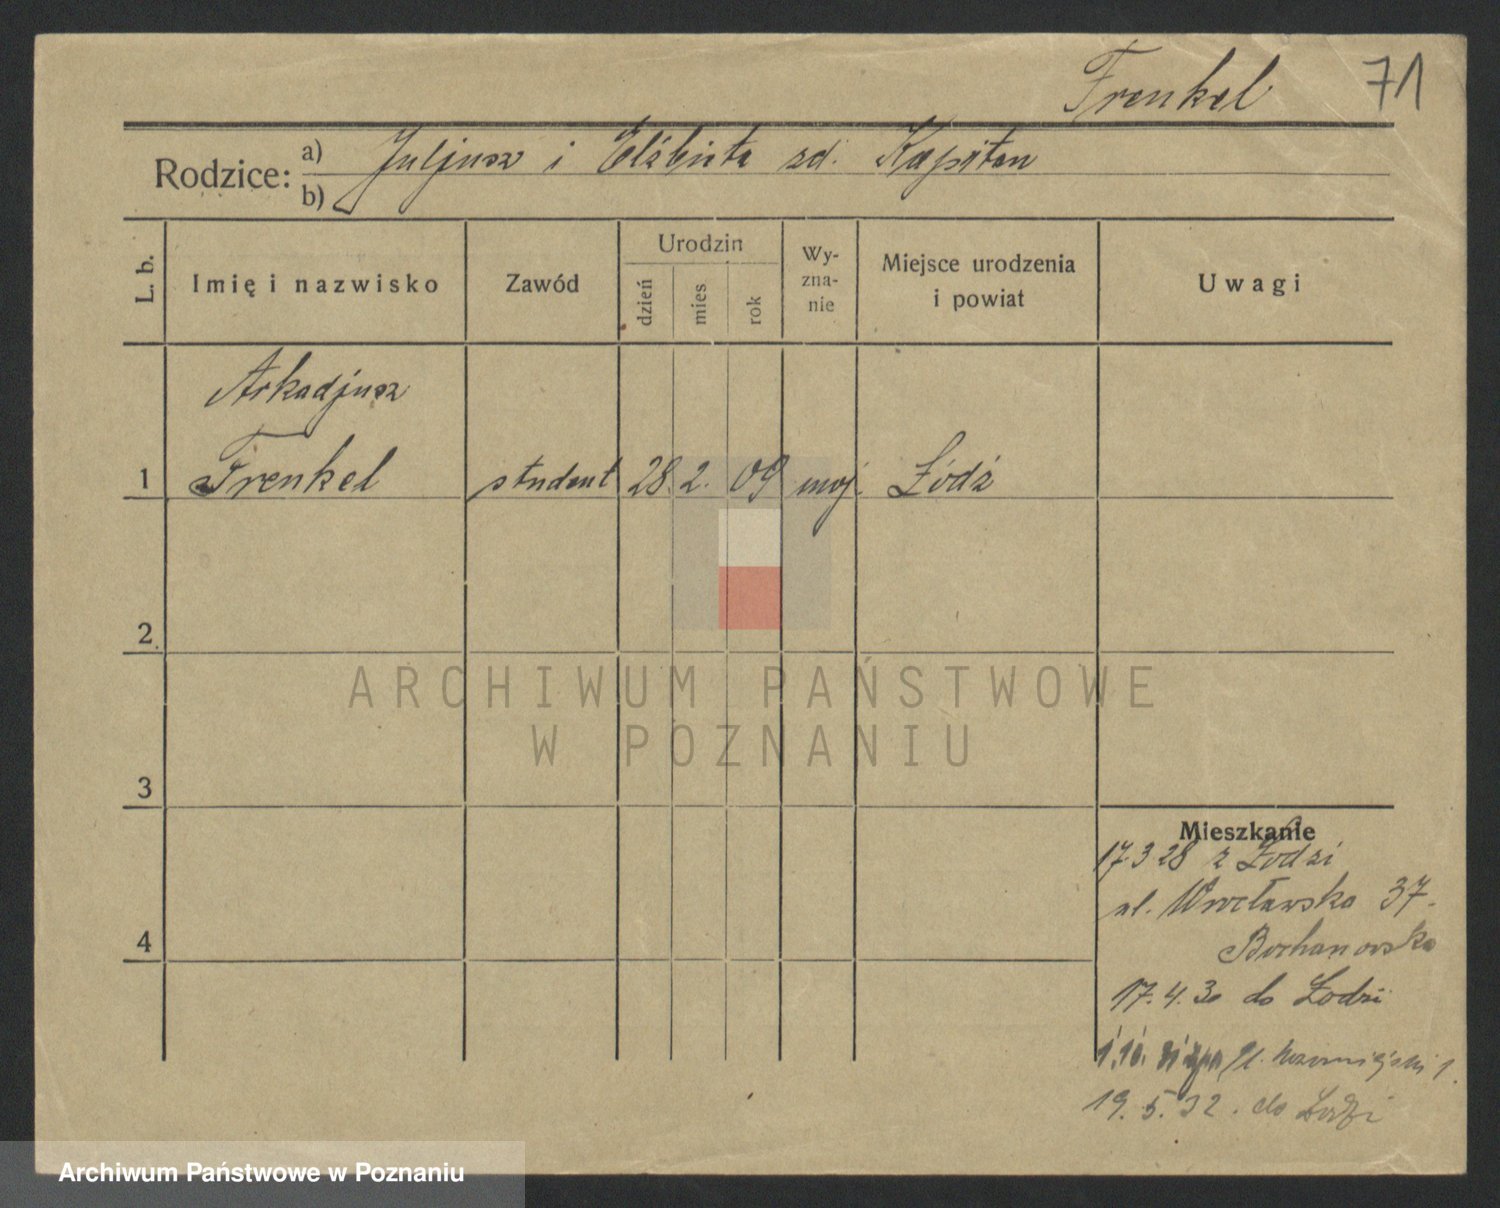 Frenkel 71
Rodzice: a) b) Juljusz i Elżbieta zd. Kapitan
L. b. Imię i nazwisko Zawód Urodzin dzień mies rok Wyznanie Miejsce urodzenia i powiat Uwagi
Arkadjusz
1 Frenkel student 28. 2. 09 moj. Łódź
2
ARCHIWUM PAŃSTWOWE
W POZNANIU
3
Mieszkanie
17.3 28 z Łodzi
ul. Wrocławska 37.
Bochanowska
4
17.4.30 do Łodzi
1.10. pl. 1.
19.5.32. do Łodzi
Archiwum Państwowe w Poznaniu